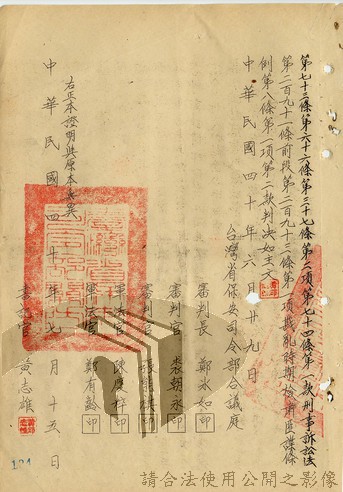 第七十三條第六十六條第三十七條第二項第七十四條第一款刑事訴訟法
第二百九十一條前段第二百九十三條第一項戡亂時期檢肅匪諜條
例第八條第一項第二款判決如主文
中華民國四十年六月廿九日
台灣省保安司令部合議庭
審判長 鄭水如 印
審判官 裘朝永 印
審判官 印
軍法官 陳慶粹 印
軍法官 鄭有齡 印
右正本證明與原本無異
中華民國四十年七月十五日
書記官 黃志雄
124
請合法使用公開之影像